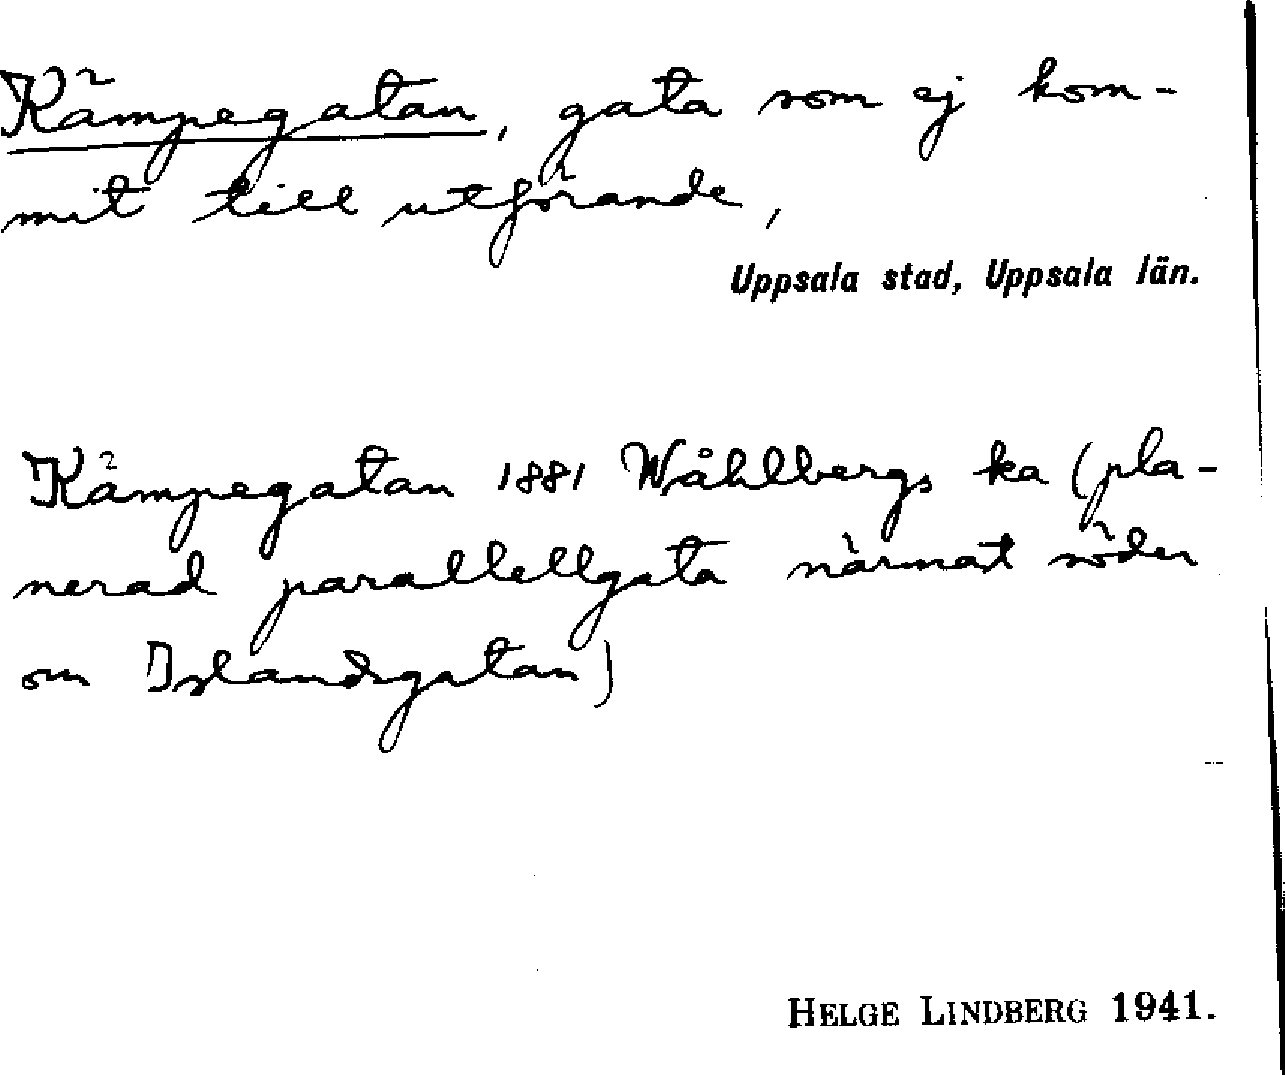 Kämpegatan, gata som ej kom-
mit till utförande,
Uppsala stad, Uppsala län.
Kämpegatan 1881 Wåhlbergs ka (pla-
nerad parallellgata närmast söder
om Islandsgatan)
HELGE LINDBERG 1941.